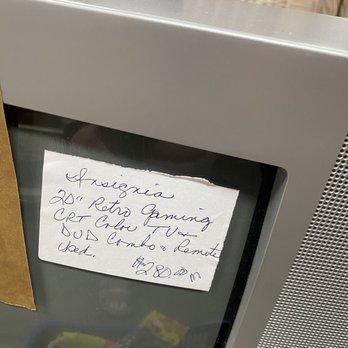 Insignia
20" Retro Gaming
CRT Color TV &
DVD Combo & Remote
Used.
$280.00